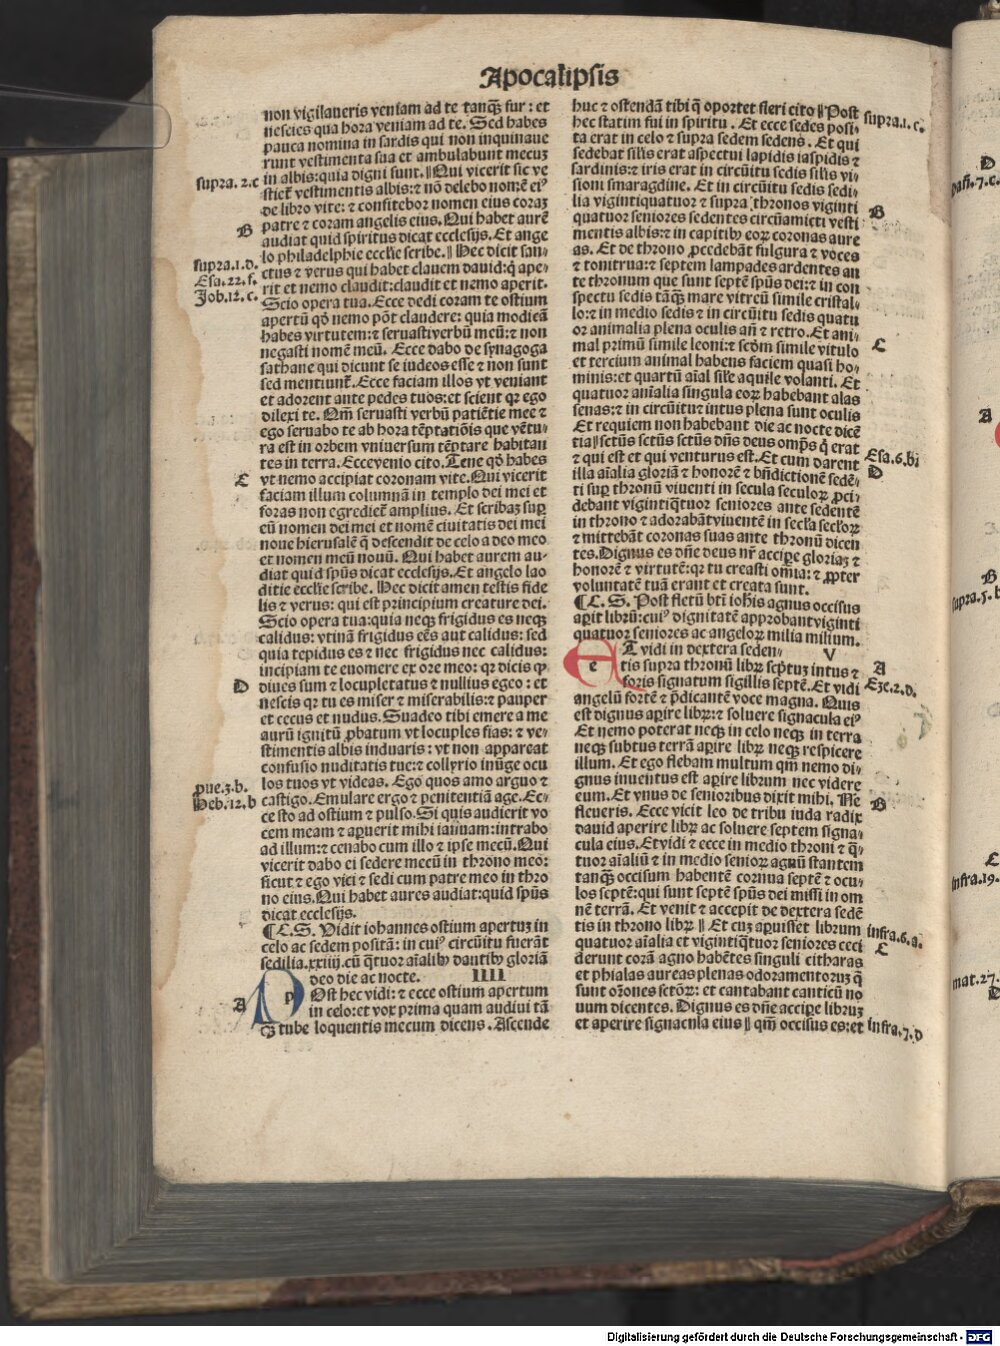 Apocalipsis
non vigilaueris veniam ad te tanqȝ fur : et
nescies qua hora veniam ad te. Sed habes
pauca nomina in sardis qui non inquinaue
runt vestimenta sua et ambulabunt mecuȝ
in albis:quia digni sunt.‖Qui vicerit sic ve
supra.2.c
stiet᷑ vestimentis albis:⁊ nō delebo nomē eiꝰ
de libro vite: ⁊ confitebor nomen eius coraȝ
patre ⁊ coram angelis eius. Qui habet aurē
B
audiat quid spiritus dicat ecclesijs. Et ange
lo philadelphie ecclie scribe.‖Hec dicit san⸗
supra.1.d.
ctus ⁊ verus qui habet clauem dauid:q̇ ape⸗
Esa.22.f.
rit et nemo claudit:claudit et nemo aperit.
Job.12.c.
Scio opera tua. Ecce dedi coram te ostium
apertū qđ nemo pōt claudere: quia modicā
habes virtutem:⁊ seruastiverbū meū:⁊ non
negasti nomē meū. Ecce dabo de synagoga
sathane qui dicunt se iudeos esse ⁊ non sunt
sed mentiunt᷑. Ecce faciam illos vt veniant
et adorent ante pedes tuos:et scient qꝛ ego
dilexi te. Qm̄ seruasti verbū patiētie mee ⁊
ego seruabo te ab hora tēptatiōis que vētu⸗
ra est in orbem vniuersum tēptare habitan
tes in terra. Eccevenio cito. Tene qđ habes
C
vt nemo accipiat coronam vite. Qui vicerit
faciam illum columnā in templo dei mei et
foras non egrediet᷑ amplius. Et scribaȝ suꝑ
eū nomen dei mei et nomē ciuitatis dei mei
noue hierusalē q̄ descendit de celo a deo meo
et nomen meū nouū. Qui habet aurem au⸗
diat quid spūs dicat ecclesijs. Et angelo lao
ditie ecclie scribe. Hec dicit amen testis fide
lis ⁊ verus: qui est principium creature dei.
Scio opera tua:quia neqȝ frigidus es neqȝ
calidus: vtinā frigidus eēs aut calidus: sed
quia tepidus es ⁊ nec frigidus nec calidus:
incipiam te euomere ex ore meo: qꝛ dicis ꝙ
D
diues sum ⁊ locupletatus ⁊ nullius egeo : et
nescis qꝛ tu es miser ⁊ miserabilis:⁊ pauper
et cecus et nudus. Suadeo tibi emere a me
aurū ignitū ꝓbatum vt locuples fias: ⁊ ve⸗
stimentis albis induaris : vt non appareat
confusio nuditatis tue:⁊ collyrio inūge ocu
los tuos vt videas. Ego quos amo arguo ⁊
ꝓue.3.b.
castigo. Emulare ergo ⁊ penitentiā age. Ec⸗
Heb.12.b
ce sto ad ostium ⁊ pulso. Si quis audierit vo
cem meam ⁊ aꝑuerit mihi ianuam:intrabo
ad illum:⁊ cenabo cum illo ⁊ ipse mecū. Qui
vicerit dabo ei sedere mecū in throno meo:
sicut ⁊ ego vici ⁊ sedi cum patre meo in thro
no eius. Qui habet aures audiat:quid spūs
dicat ecclesijs.
¶C. S. Vidit iohannes ostium apertuȝ in
celo ac sedem positā: in cuiꝰ circūitu fuerāt
sedilia.xxiiij.cū q̄tuor aīalibꝰ dantibꝰ gloriā
deo die ac nocte. IIII
A
p
Ost hec vidi: ⁊ ecce ostium apertum
in celo:et vox prima quam audiui tā
qȝ tube loquentis mecum dicens. Ascende
huc ⁊ ostendā tibi q̄ oportet fieri cito‖Post
supra.1.c.
hec statim fui in spiritu. Et ecce sedes posi⸗
ta erat in celo ⁊ supra sedem sedens. Et qui
sedebat silis erat aspectui lapidis iaspidis ⁊
sardinis:⁊ iris erat in circūitu sedis silis vi⸗
sioni smaragdine. Et in circūitu sedis sedi⸗
lia vigintiquatuor ⁊ supra thronos viginti
B
quatuor seniores sedentes circūamicti vesti
mentis albis:⁊ in capitibꝰ eoꝝ coronas aure
as. Et de throno ꝓcedebāt fulgura ⁊ voces
⁊ tonitrua:⁊ septem lampades ardentes an
te thronum que sunt septē spūs dei:⁊ in con
spectu sedis tāqȝ mare vitreū simile cristal⸗
lo:⁊ in medio sedis ⁊ in circūitu sedis quatu
or animalia plena oculis añ ⁊ retro. Et ani⸗
C
mal primū simile leoni:⁊ scđm simile vitulo
et tercium animal habens faciem quasi ho⸗
minis:et quartū aīal sile aquile volanti. Et
quatuor animalia singula eoꝝ habebant alas
senas:⁊ in circūitu⁊ intus plena sunt oculis
Et requiem non habebant die ac nocte dicē
tia‖sctūs sctūs sctūs dn̄s deus omps q̇ erat
Esa.6.b
⁊ qui est et qui venturus est. Et cum darent
D
illa aīalia gloriā ⁊ honorē ⁊ bn̄dictionē sedē⸗
ti suꝑ thronū viuenti in secula seculoꝝ ꝓci⸗
debant vigintiq̄tuor seniores ante sedentē
in throno ⁊ adorabātviuentē in secla secloꝝ
⁊ mittebāt coronas suas ante thronū dicen
tes. Dignus es dn̄e deus nr̄ accipe gloriaȝ ⁊
honorē ⁊ virtutē:qꝛ tu creasti om̄ia: ⁊ ꝓpter
voluntatē tuā erant et creata sunt.
¶C. S. Post fletū bti ioh̄is agnus occisus
aꝑit librū:cuiꝰ dignitatē approbantviginti
quatuor seniores ac angeloꝝ milia milium.
e
T vidi in dextera seden⸗ V
tis supra thronū libꝝ scptuȝ intus ⁊
A
foris signatum sigillis septē. Et vidi
Eze.2.d.
angelū fortē ⁊ p̄dicantē voce magna. Quis
est dignus aꝑire libꝝ:⁊ soluere signacula eiꝰ
Et nemo poterat neqȝ in celo neqȝ in terra
neqȝ subtus terrā aꝑire libꝝ neqȝ respicere
illum. Et ego flebam multum qm̄ nemo di⸗
gnus inuentus est aꝑire librum nec videre
eum. Et vnus de senioribus dixit mihi. Ne
B
fleueris. Ecce vicit leo de tribu iuda radix
dauid aperire libꝝ ac soluere septem signa⸗
cula eius. Etvidi ⁊ ecce in medio throni ⁊ q̄⸗
tuor aīaliū ⁊ in medio senioꝝ agnū stantem
tanqȝ occisum habentē cornua septē ⁊ ocu⸗
los septē:qui sunt septē spūs dei missi in om
nē terrā. Et venit ⁊ accepit de dextera sedē
tis in throno libꝝ‖Et cuȝ aꝑuisset librum
infra.6.a.
quatuor aīalia et vigintiq̄tuor seniores ceci
C
derunt corā agno habētes singuli citharas
et phialas aureas plenas odoramentoruȝ q̄
sunt orōnes sctōꝝ: et cantabant canticū no
uum dicentes. Dignus es dn̄e accipe libruȝ
et aperire signacula eius‖qm̄ occisus es:et
infra.7.d
D
A
B
supra.5.b
C
infra.19.
mat.27.
D
Digitalisierung gefördert durch die Deutsche Forschungsgemeinschaft - DFG